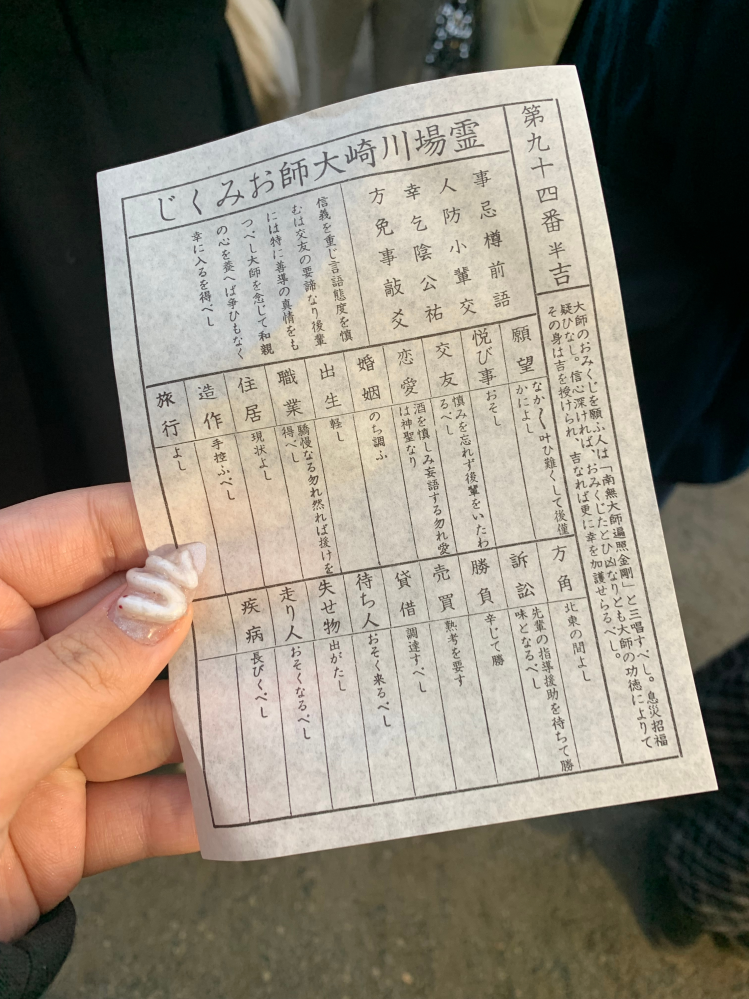 第九十四番 半吉
大師のおみくじを願ふ人は「南無大師遍照金剛」と三唱すべし。息災招福
疑ひなし。信心深ければ、おみくじたとひ凶なりとも大師の功徳によりて
その身は吉を授けられ、吉なれば更に幸を加護せらるべし。
霊場川崎大師おみくじ
事忌樽前語
人防小輩交
幸乞陰公祐
方免事敲爻
信義を重じ言語態度を慎
むは交友の要諦なり後輩
には特に善導の真情をも
つべし大師を念じて和親
の心を養へば争ひもなく
幸に入るを得べし
願望
なか〱叶ひ難くして後僅
かによし
悦び事
おそし
交友
慎みを忘れず後輩をいたわ
るべし
恋愛
酒を慎しみ妄語する勿れ愛
は神聖なり
婚姻
のち調ふ
出生
軽し
職業
驕慢なる勿れ然れば援けを
得べし
住居
現状よし
造作
手控ふべし
旅行
よし
方角
北東の間よし
訴訟
先輩の指導援助を待ちて勝
味となるべし
勝負
辛じて勝
売買
熟考を要す
貸借
調達すべし
待ち人
おそく来るべし
失せ物
出がたし
走り人
おそくなるべし
疾病
長びくべし